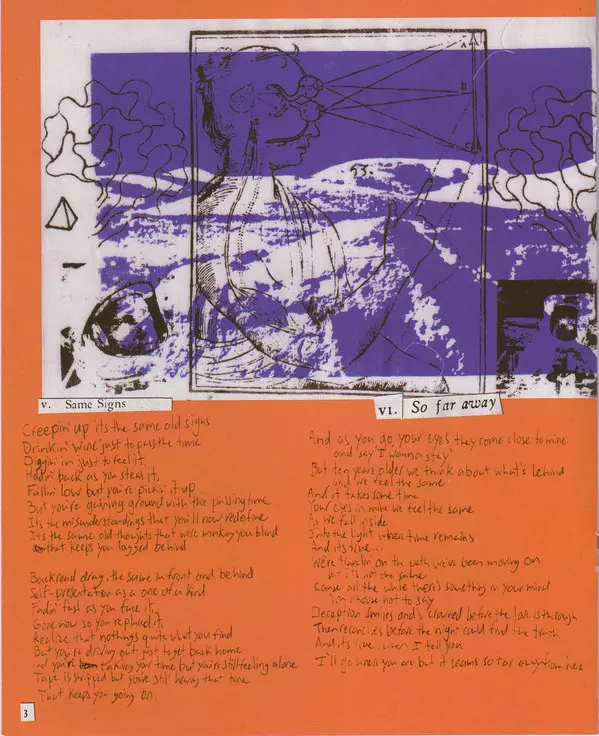 A
B
C
53.
v. Same Signs
Creepin' up its the same old signs
Drinkin' wine just to pass the time
Diggin' in just to feel it.
back as you steal it.
Fallin low but you're pickin' it up
But you're gaining ground with the passing time
Its the misunderstandings that you'll now redefine
Its the same old thoughts that were making you blind
that keeps you lagged behind
Backroad drag, the same in front and behind
Self-presentation as a one of a kind
Fadin' fast as you face it,
Gone now so you replaced it,
Realize that nothings quite what you find
But you're driving out just to get back home
And you're taking your time but you're still feeling alone
Tape is stripped but you're still hearing that tune
That keeps you going on.
VI. So far away
And as you go your eyes they come close to mine
and say 'I wanna stay'
But ten years older we think about what's behind
and we feel the same
And it takes some time
Your eyes in mine we feel the same
As we fall inside
Into the light where time remains
And its true...
We're travelin on the path we've been moving on
but it's not the same
Cause all the while there's something in your mind
I'm choose not to say
Deception smiles and's crowned before the is through
Then before the night could find the truth
And its true, when I tell you
I'll go where you are but it seems so far away from here
3